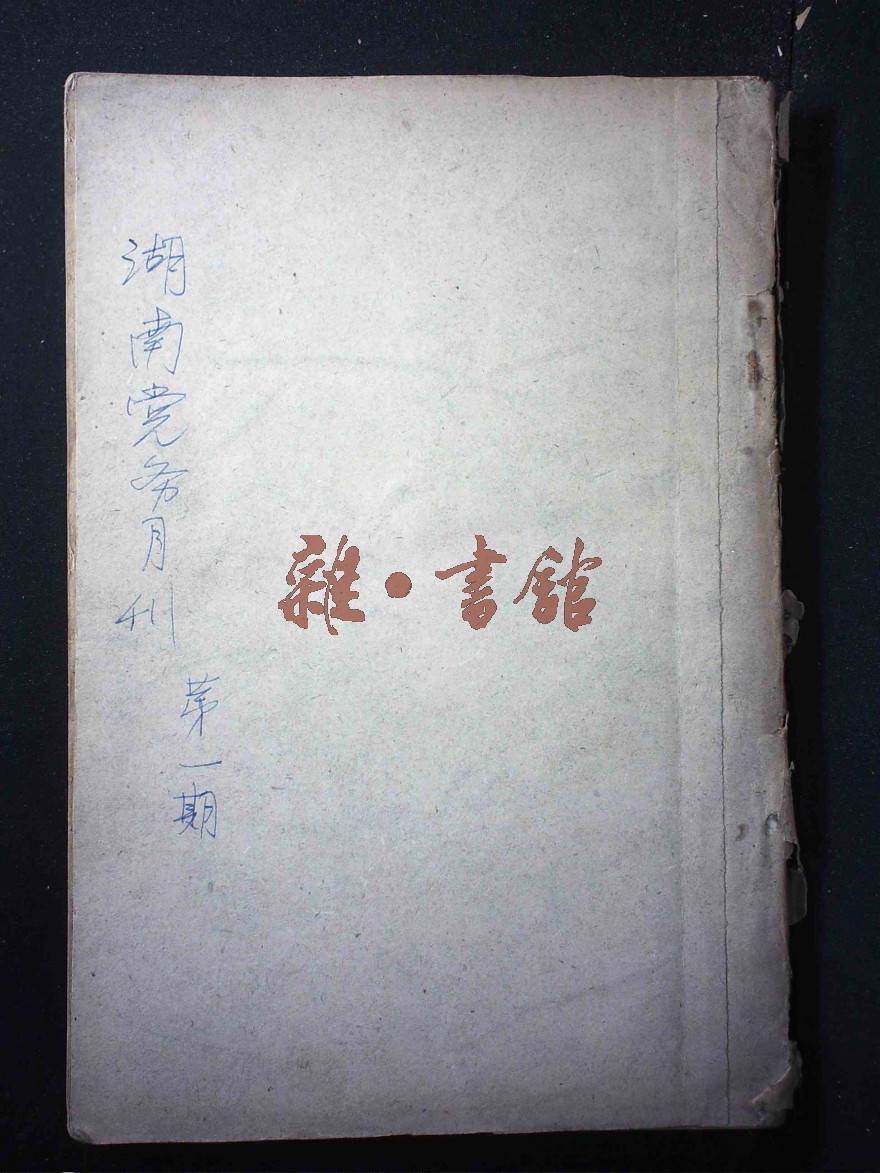 湖南党务月刊
第一期
雜·書館